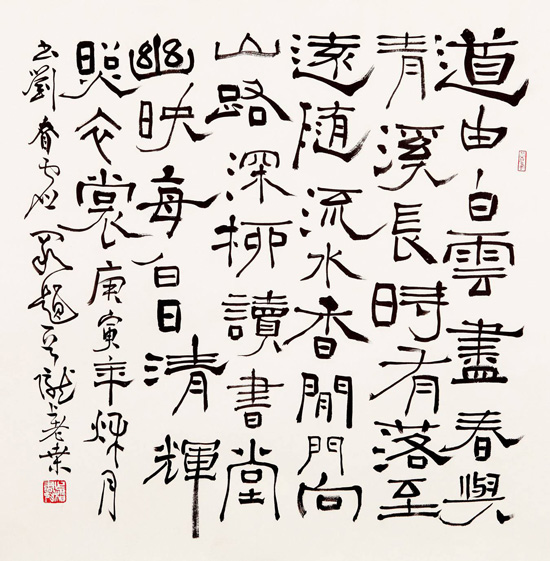 道由白雲盡春與
青溪長時有落至
遠隨流水香閒門向
山路深柳讀書堂
幽映每白日清輝
照衣裳庚寅年秋月
书劉眘虛闕題隴上老